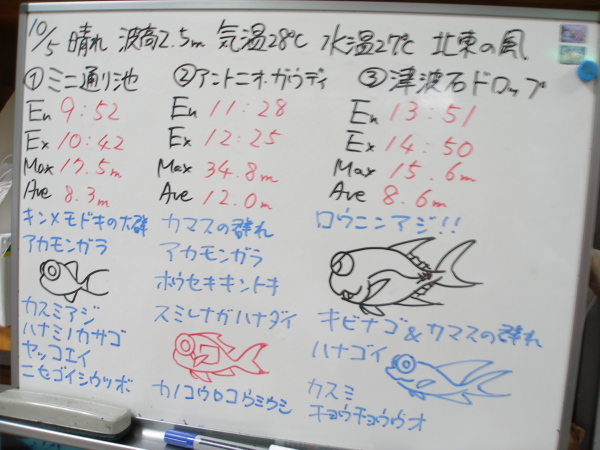 10/5 晴れ 波高2.5m 気温28℃ 水温27℃ 北東の風
①ミニ通り池
En 9:52
Ex 10:42
Max 17.5m
Ave 8.3m
キンメモドキの大群
アカモンガラ
カスミアジ
ハナミノカサゴ
ヤッコエイ
ニセゴイシウツボ
②アントニオ・ガウディ
En 11:28
Ex 12:25
Max 34.8m
Ave 12.0m
カマスの群れ
アカモンガラ
ホウセキキントキ
スミレナガハナダイ
カノコウロコウミウシ
③津波石ドロップ
En 13:51
Ex 14:50
Max 15.6m
Ave 8.6m
ロウニンアジ!!
キビナゴ&カマスの群れ
ハナゴイ
カスミ
チョウチョウウオ